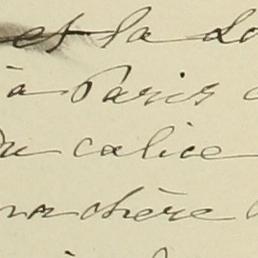 et la
à Paris
du calice
ma chère